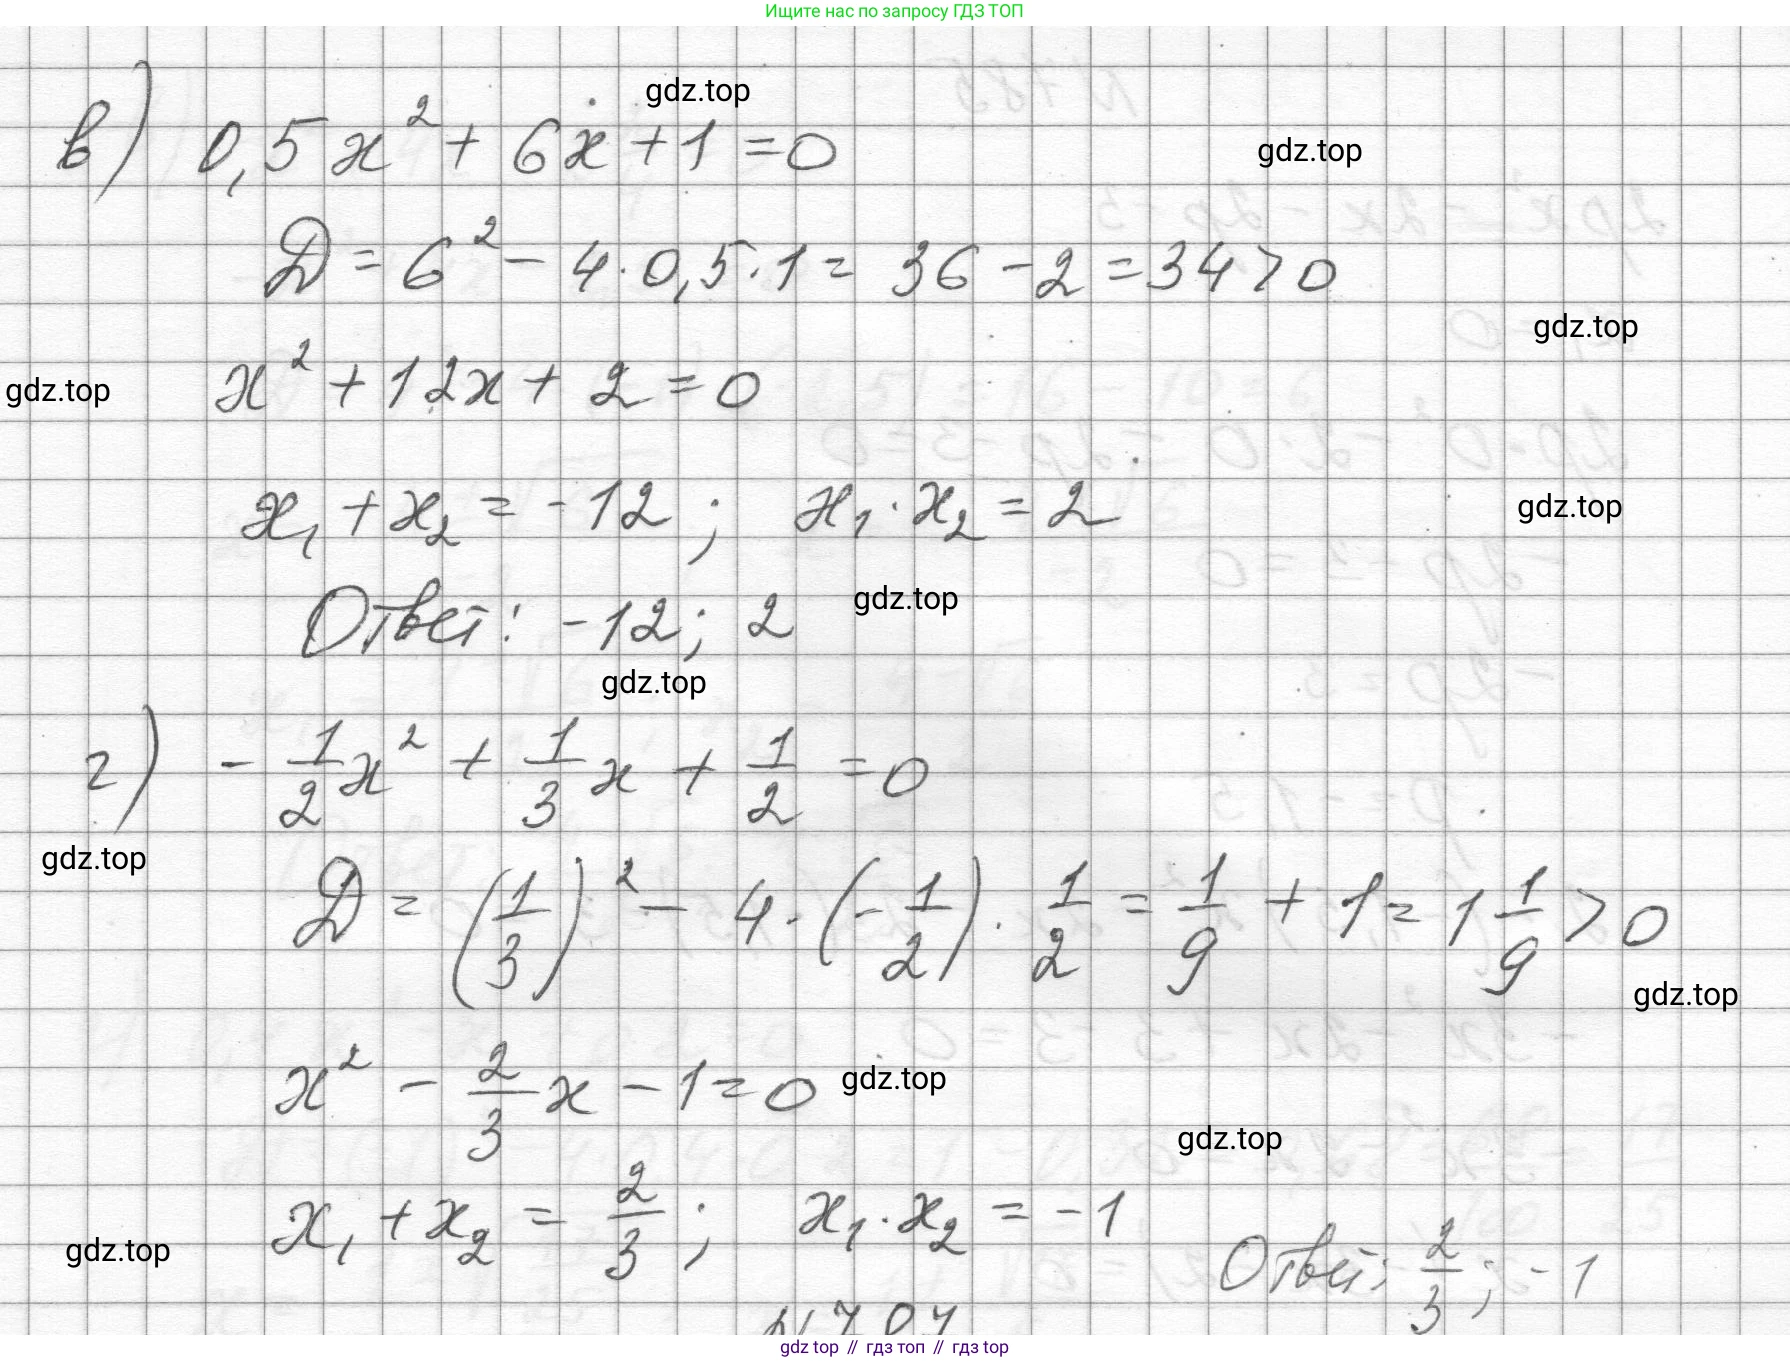 Ищите нас по запросу ГДЗ ТОП
gdz.top
в) 0,5x² + 6x + 1 = 0
gdz.top
D = 6² - 4·0,5·1 = 36 - 2 = 34 > 0
gdz.top
x² + 12x + 2 = 0
gdz.top
x₁ + x₂ = -12; x₁·x₂ = 2
gdz.top
Ответ: -12; 2
gdz.top
gdz.top
г) -1/2x² + 1/3x + 1/2 = 0
gdz.top
D = (1/3)² - 4·(-1/2)·1/2 = 1/9 + 1 = 1 1/9 > 0
gdz.top
x² - 2/3x - 1 = 0
gdz.top
gdz.top
x₁ + x₂ = 2/3; x₁·x₂ = -1
gdz.top
Ответ: 2/3; -1
gdz top // гдз топ // gdz top